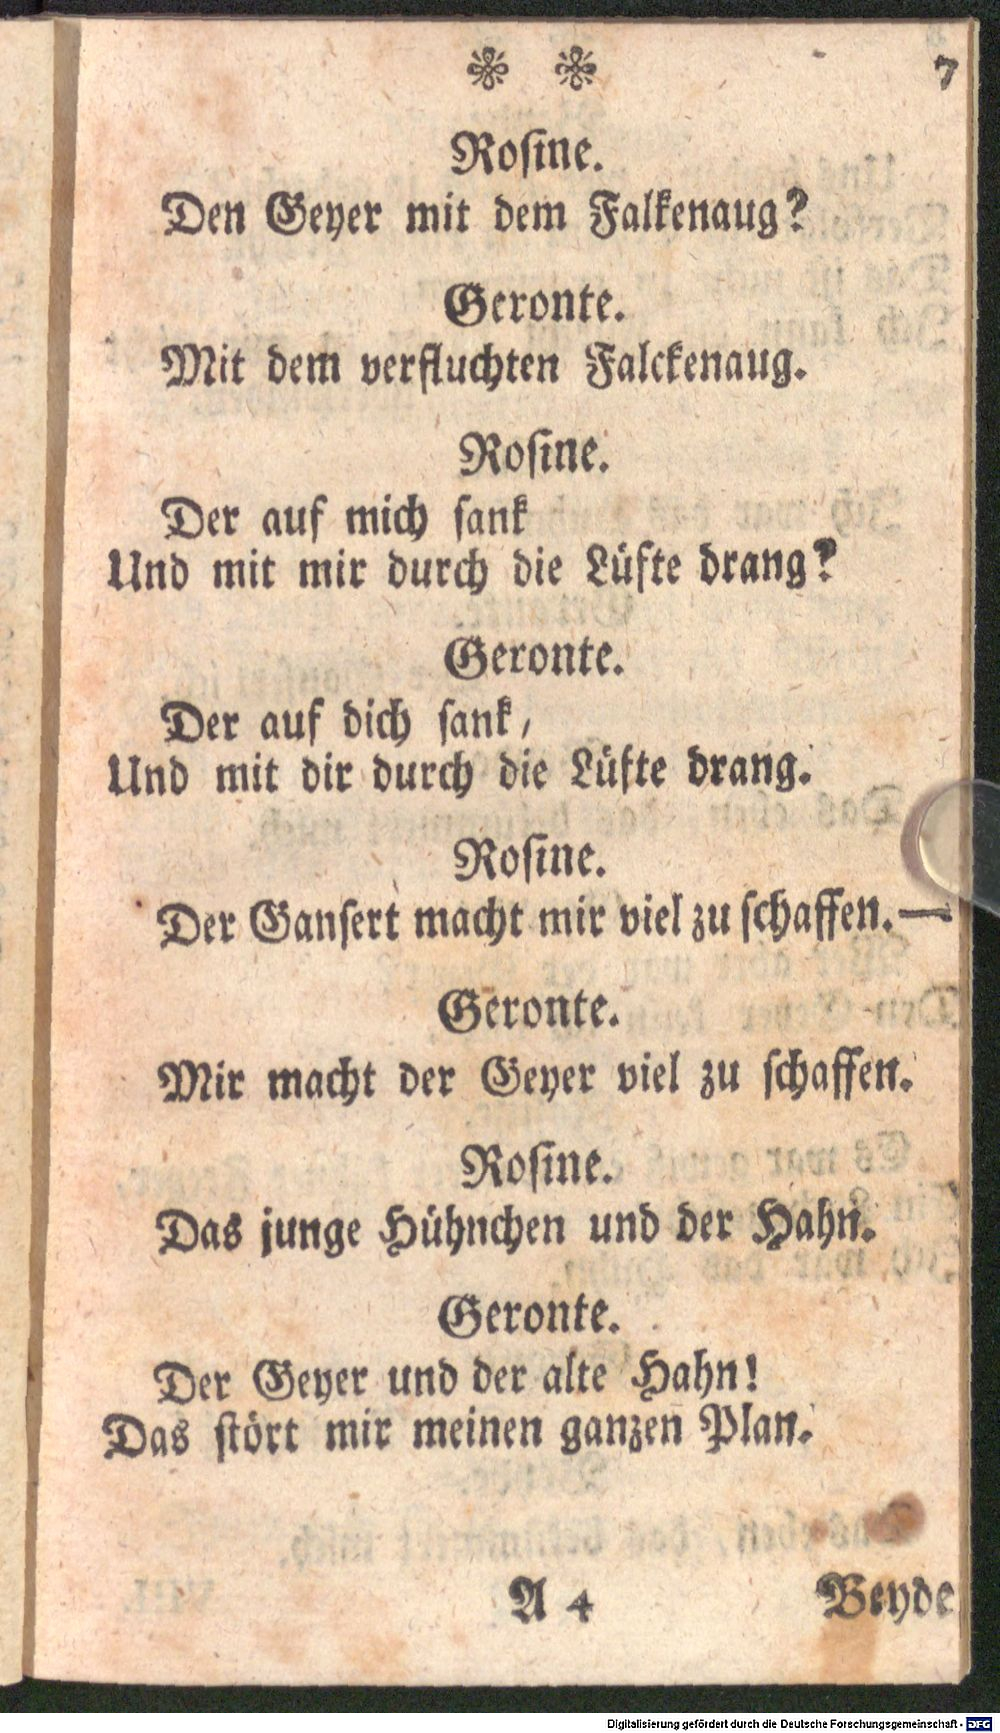 7
Roſine.
Den Geyer mit dem Falkenaug?
Geronte.
Mit dem verfluchten Falckenaug.
Roſine.
Der auf mich ſank
Und mit mir durch die Lüfte drang?
Geronte.
Der auf dich ſank,
Und mit dir durch die Lüfte drang.
Roſine.
Der Ganſert macht mir viel zu ſchaffen.—
Geronte.
Mir macht der Geyer viel zu ſchaffen.
Roſine.
Das junge Hühnchen und der Hahn.
Geronte.
Der Geyer und der alte Hahn!
Das ſtört mir meinen ganzen Plan.
A 4 Beyde
Digitalisierung gefördert durch die Deutsche Forschungsgemeinschaft - DFG